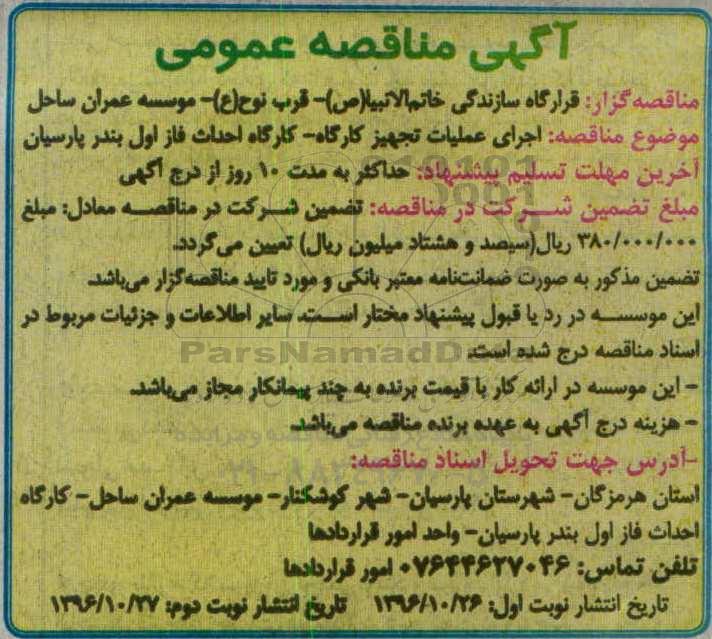 آگهی مناقصه عمومی
مناقصه‌گزار: قرارگاه سازندگی خاتم‌الانبیا(ص)- قرب نوح(ع)- موسسه عمران ساحل
موضوع مناقصه: اجرای عملیات تجهیز کارگاه- کارگاه احداث فاز اول بندر پارسیان
آخرین مهلت تسلیم پیشنهاد: حداکثر به مدت ۱۰ روز از درج آگهی
مبلغ تضمین شرکت در مناقصه: تضمین شرکت در مناقصه معادل: مبلغ
۳۸۰/۰۰۰/۰۰۰ ریال(سیصد و هشتاد میلیون ریال) تعیین می‌گردد.
تضمین مذکور به صورت ضمانتنامه معتبر بانکی و مورد تایید مناقصه‌گزار می‌باشد.
این موسسه در رد یا قبول پیشنهاد مختار است. سایر اطلاعات و جزئیات مربوط در
اسناد مناقصه درج شده است.
ParsNamadData
- این موسسه در ارائه کار با قیمت برنده به چند پیمانکار مجاز می‌باشد.
- هزینه درج آگهی به عهده برنده مناقصه می‌باشد.
-آدرس جهت تحویل اسناد مناقصه:
استان هرمزگان- شهرستان پارسیان- شهر کوشکنار- موسسه عمران ساحل- کارگاه
احداث فاز اول بندر پارسیان- واحد امور قراردادها
تلفن تماس: ۰۷۶۴۴۶۲۷۰۴۶ امور قراردادها
تاریخ انتشار نوبت اول: ۱۳۹۶/۱۰/۲۶ تاریخ انتشار نوبت دوم: ۱۳۹۶/۱۰/۲۷